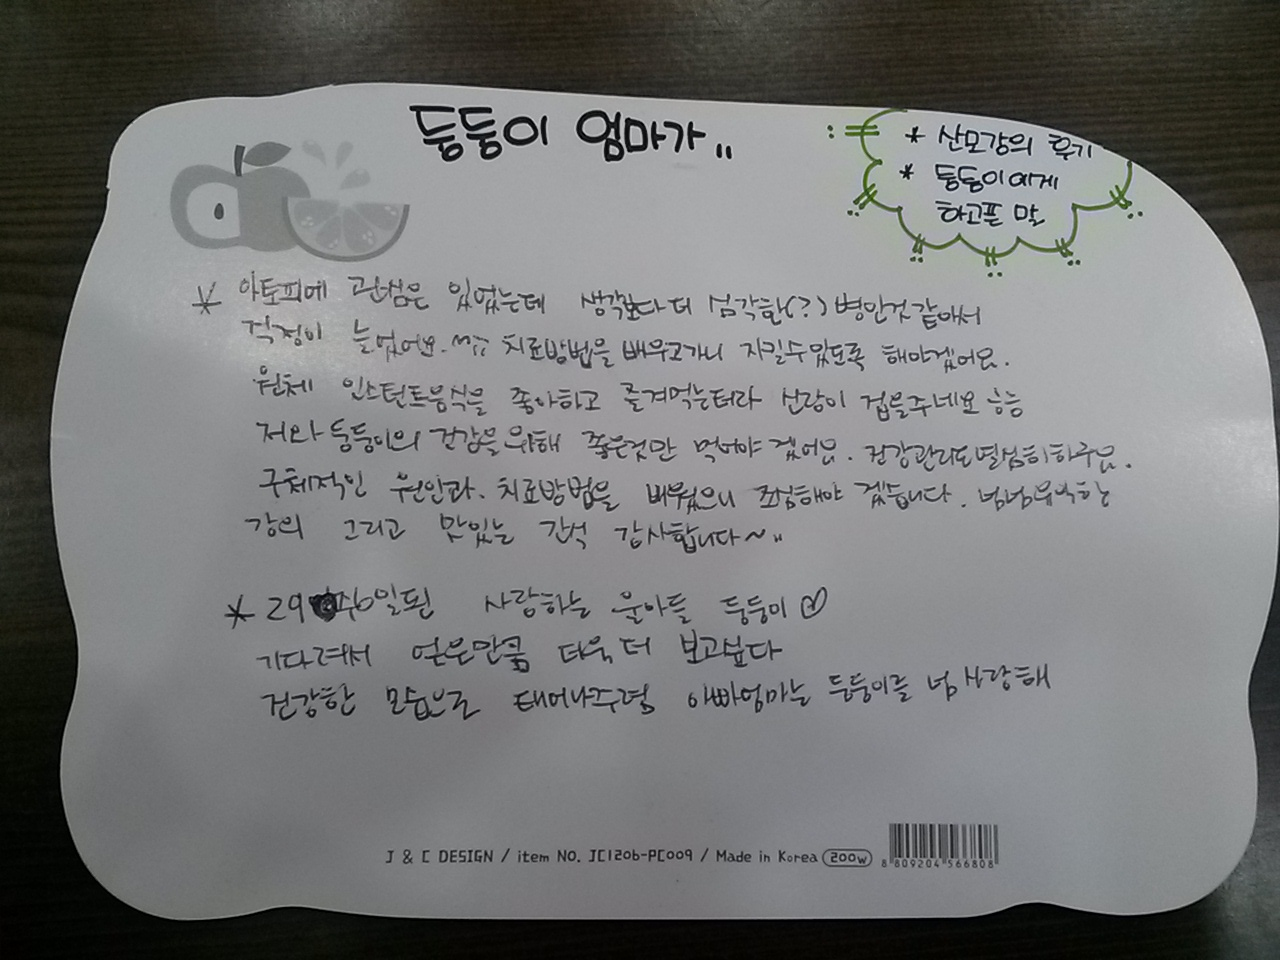 둥둥이 엄마가..
* 산모강의 후기
* 둥둥이에게
하고픈 말
* 아토피에 관심은 있었는데 생각보다 더 심각한(?) 병인것 같아서
걱정이 늘었어요. 치료방법을 배우고가니 지킬수있도록 해야겠어요.
원체 인스턴트음식을 좋아하고 즐겨먹는터라 신랑이 겁을주네요 ㅎㅎ
저와 둥둥이의 건강을위해 좋은것만 먹어야 겠어요. 건강관리도열심히하구요.
구체적인 원인과. 치료방법을 배웠으니 조심해야 겠습니다. 넘넘유익한
강의 그리고 맛있는 간식 감사합니다~..
* 29주6일된 사랑하는 울아들 둥둥이♡
기다려서 얻은만큼 더욱더 보고싶다
건강한 모습으로 태어나주렴 아빠엄마는 둥둥이를 넘 사랑해
J & C DESIGN / item NO. JC1206-PC009 / Made in Korea 200w
8 809204 566808